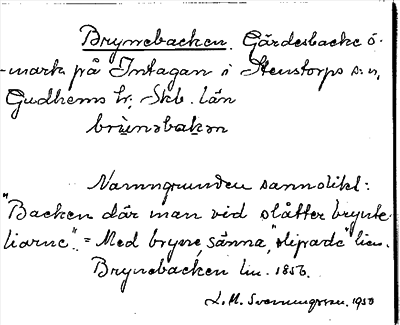 Brynebacken. Gärdesbacke ö.
-mark på Intagan i Stenstorps s:n,
Gudhems hr; Skb. län
brỳnəbakən
Namngrunden sannolikt:
"Backen där man vid slåtter brynte
liarne". = Med bryne, sänna, "slipade" lien.
Brynebacken lm. 1856.
L. M. Svenungsson. 1950